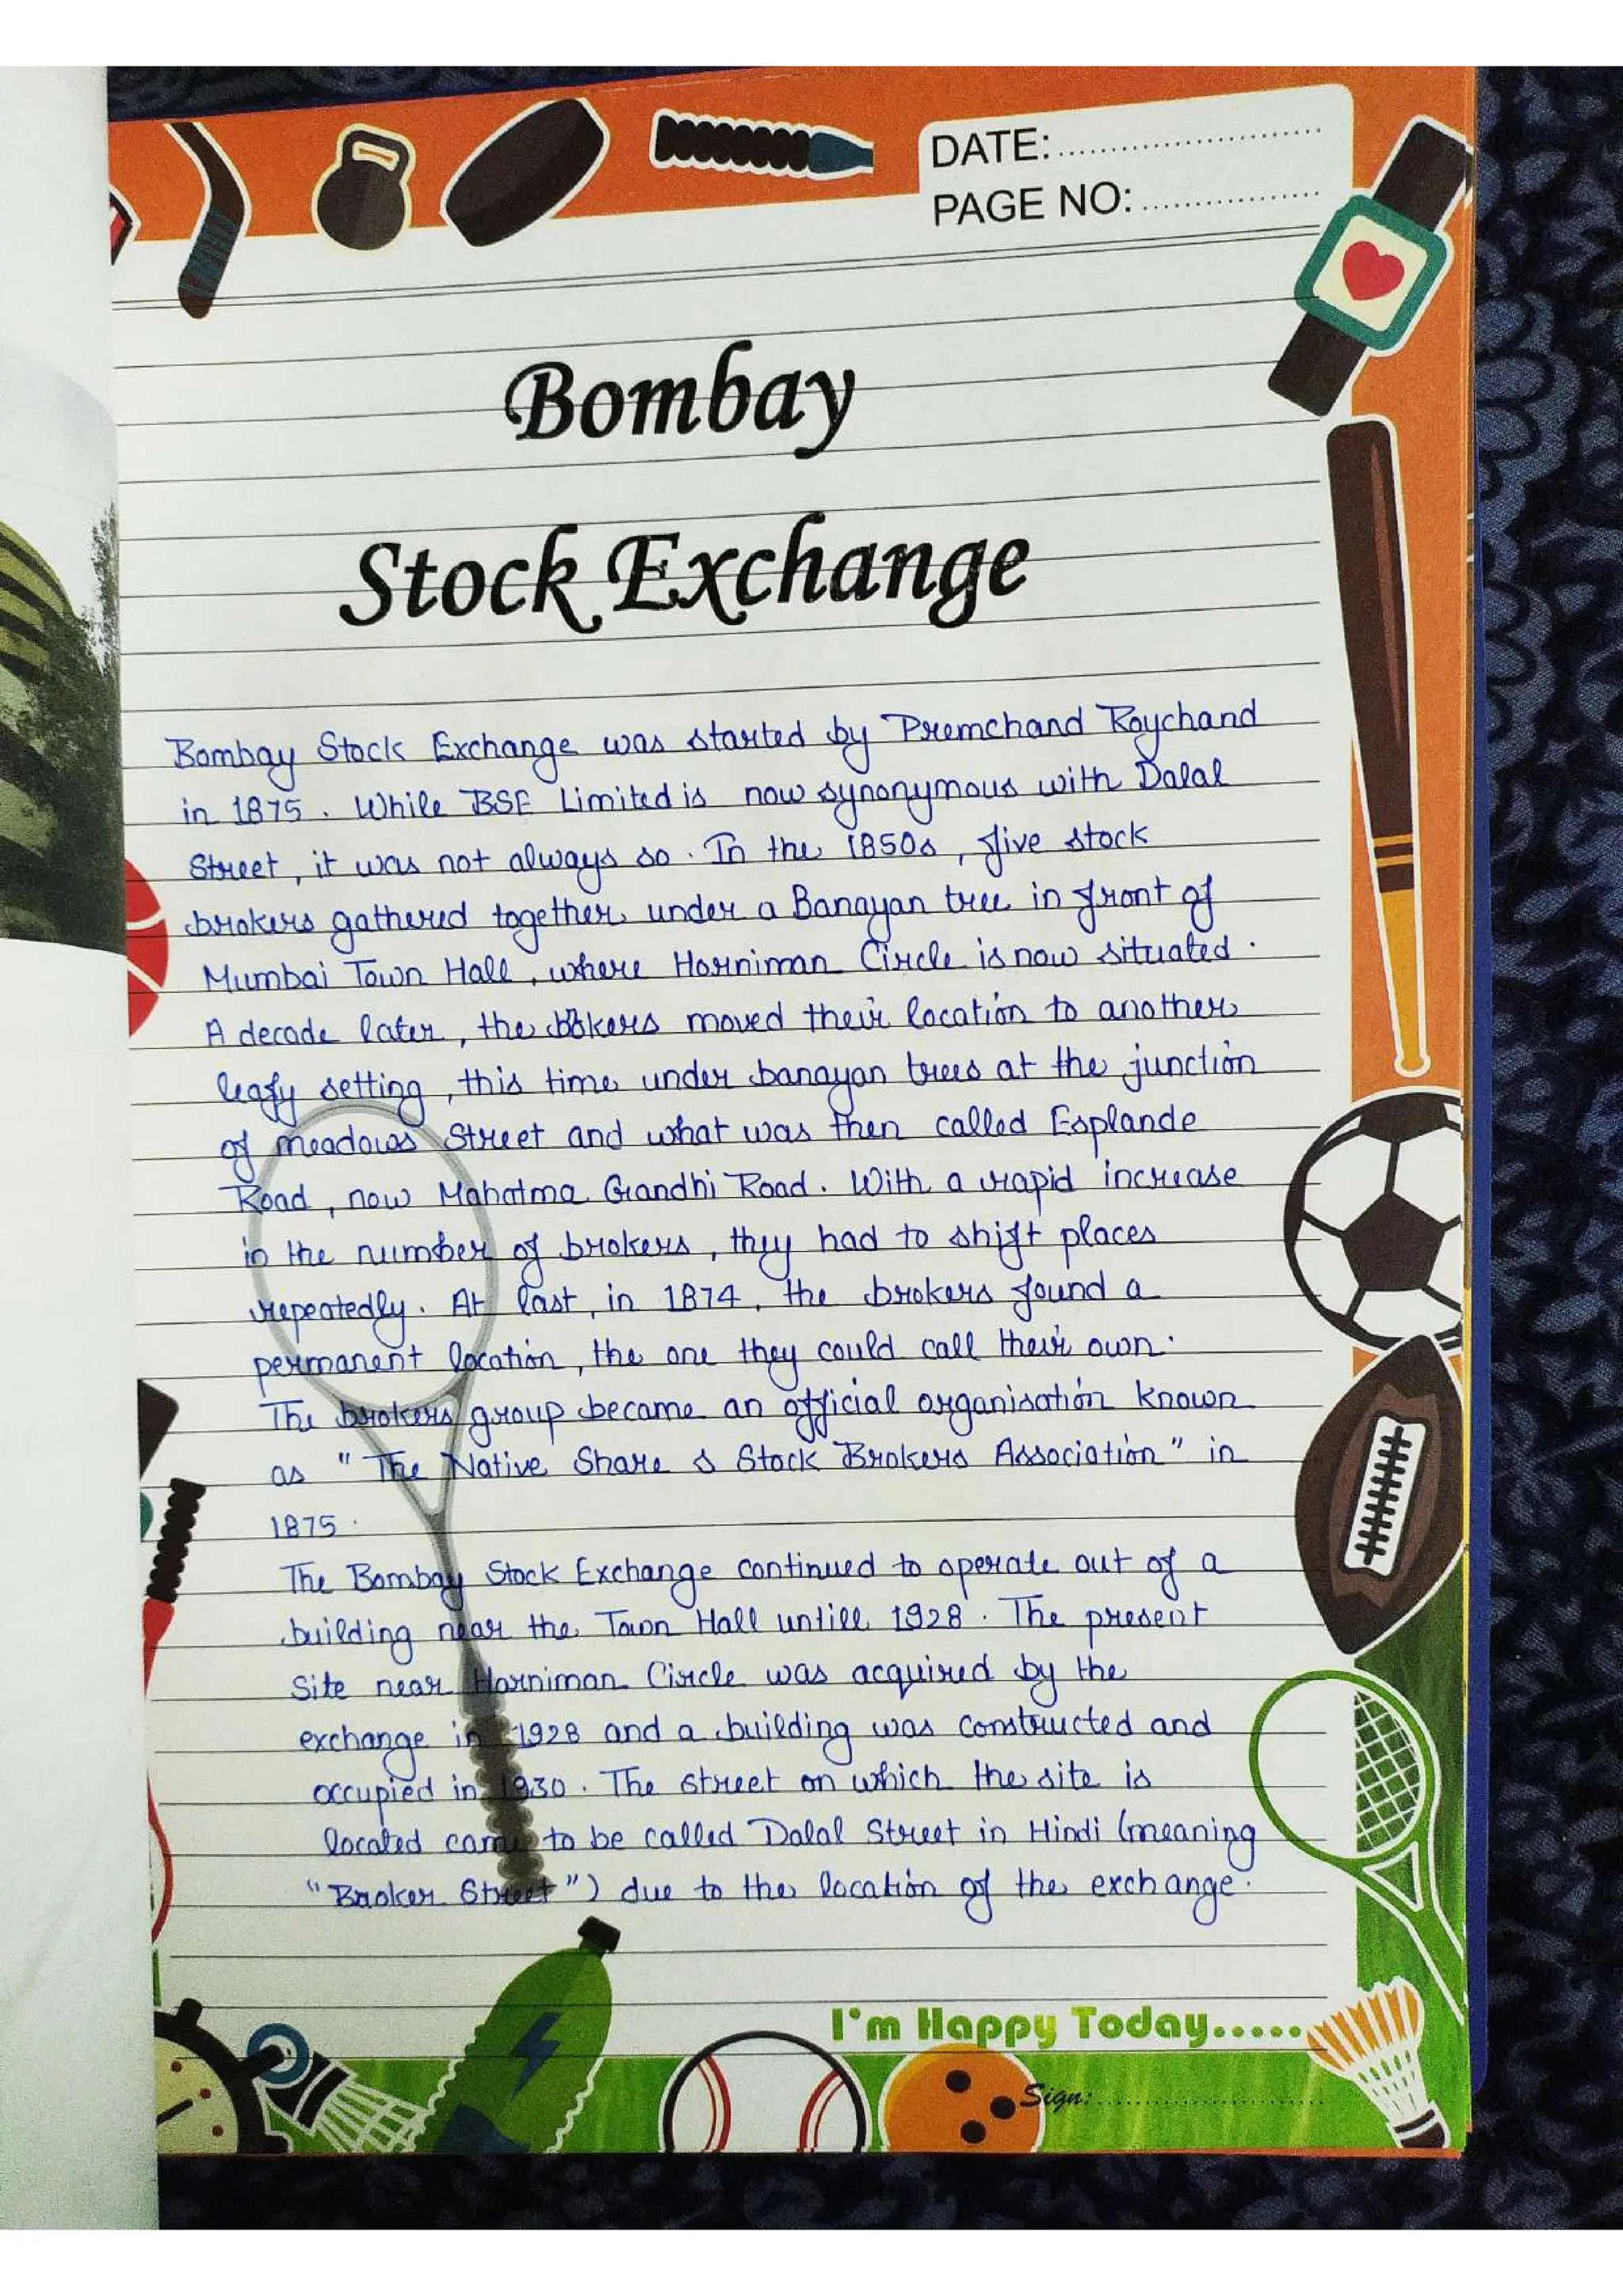 DATE:..........................
PAGE NO:..................
Bombay
Stock Exchange
Bombay Stock Exchange was started by Premchand Roychand
in 1875. While BSE Limited is now synonymous with Dalal
Street, it was not always so. In the 1850s, five stock
brokers gathered together under a Banayan tree in front of
Mumbai Town Hall, where Horniman Circle is now situated.
A decade later, the brokers moved their location to another
leafy setting, this time under banayan trees at the junction
of meadows Street and what was then called Esplande
Road, now Mahatma Gandhi Road. With a rapid increase
in the number of brokers, they had to shift places
repeatedly. At last, in 1874, the brokers found a
permanent location, the one they could call their own.
The brokers group became an official organisation known
as "The Native Share & Stock Brokers Association" in
1875.
The Bombay Stock Exchange continued to operate out of a
building near the Town Hall untill 1928. The present
site near Horniman Circle was acquired by the
exchange in 1928 and a building was constructed and
occupied in 1930. The street on which the site is
located came to be called Dalal Street in Hindi (meaning
"Broker Street") due to the location of the exchange.
I'm Happy Today.....
Sign:..........................